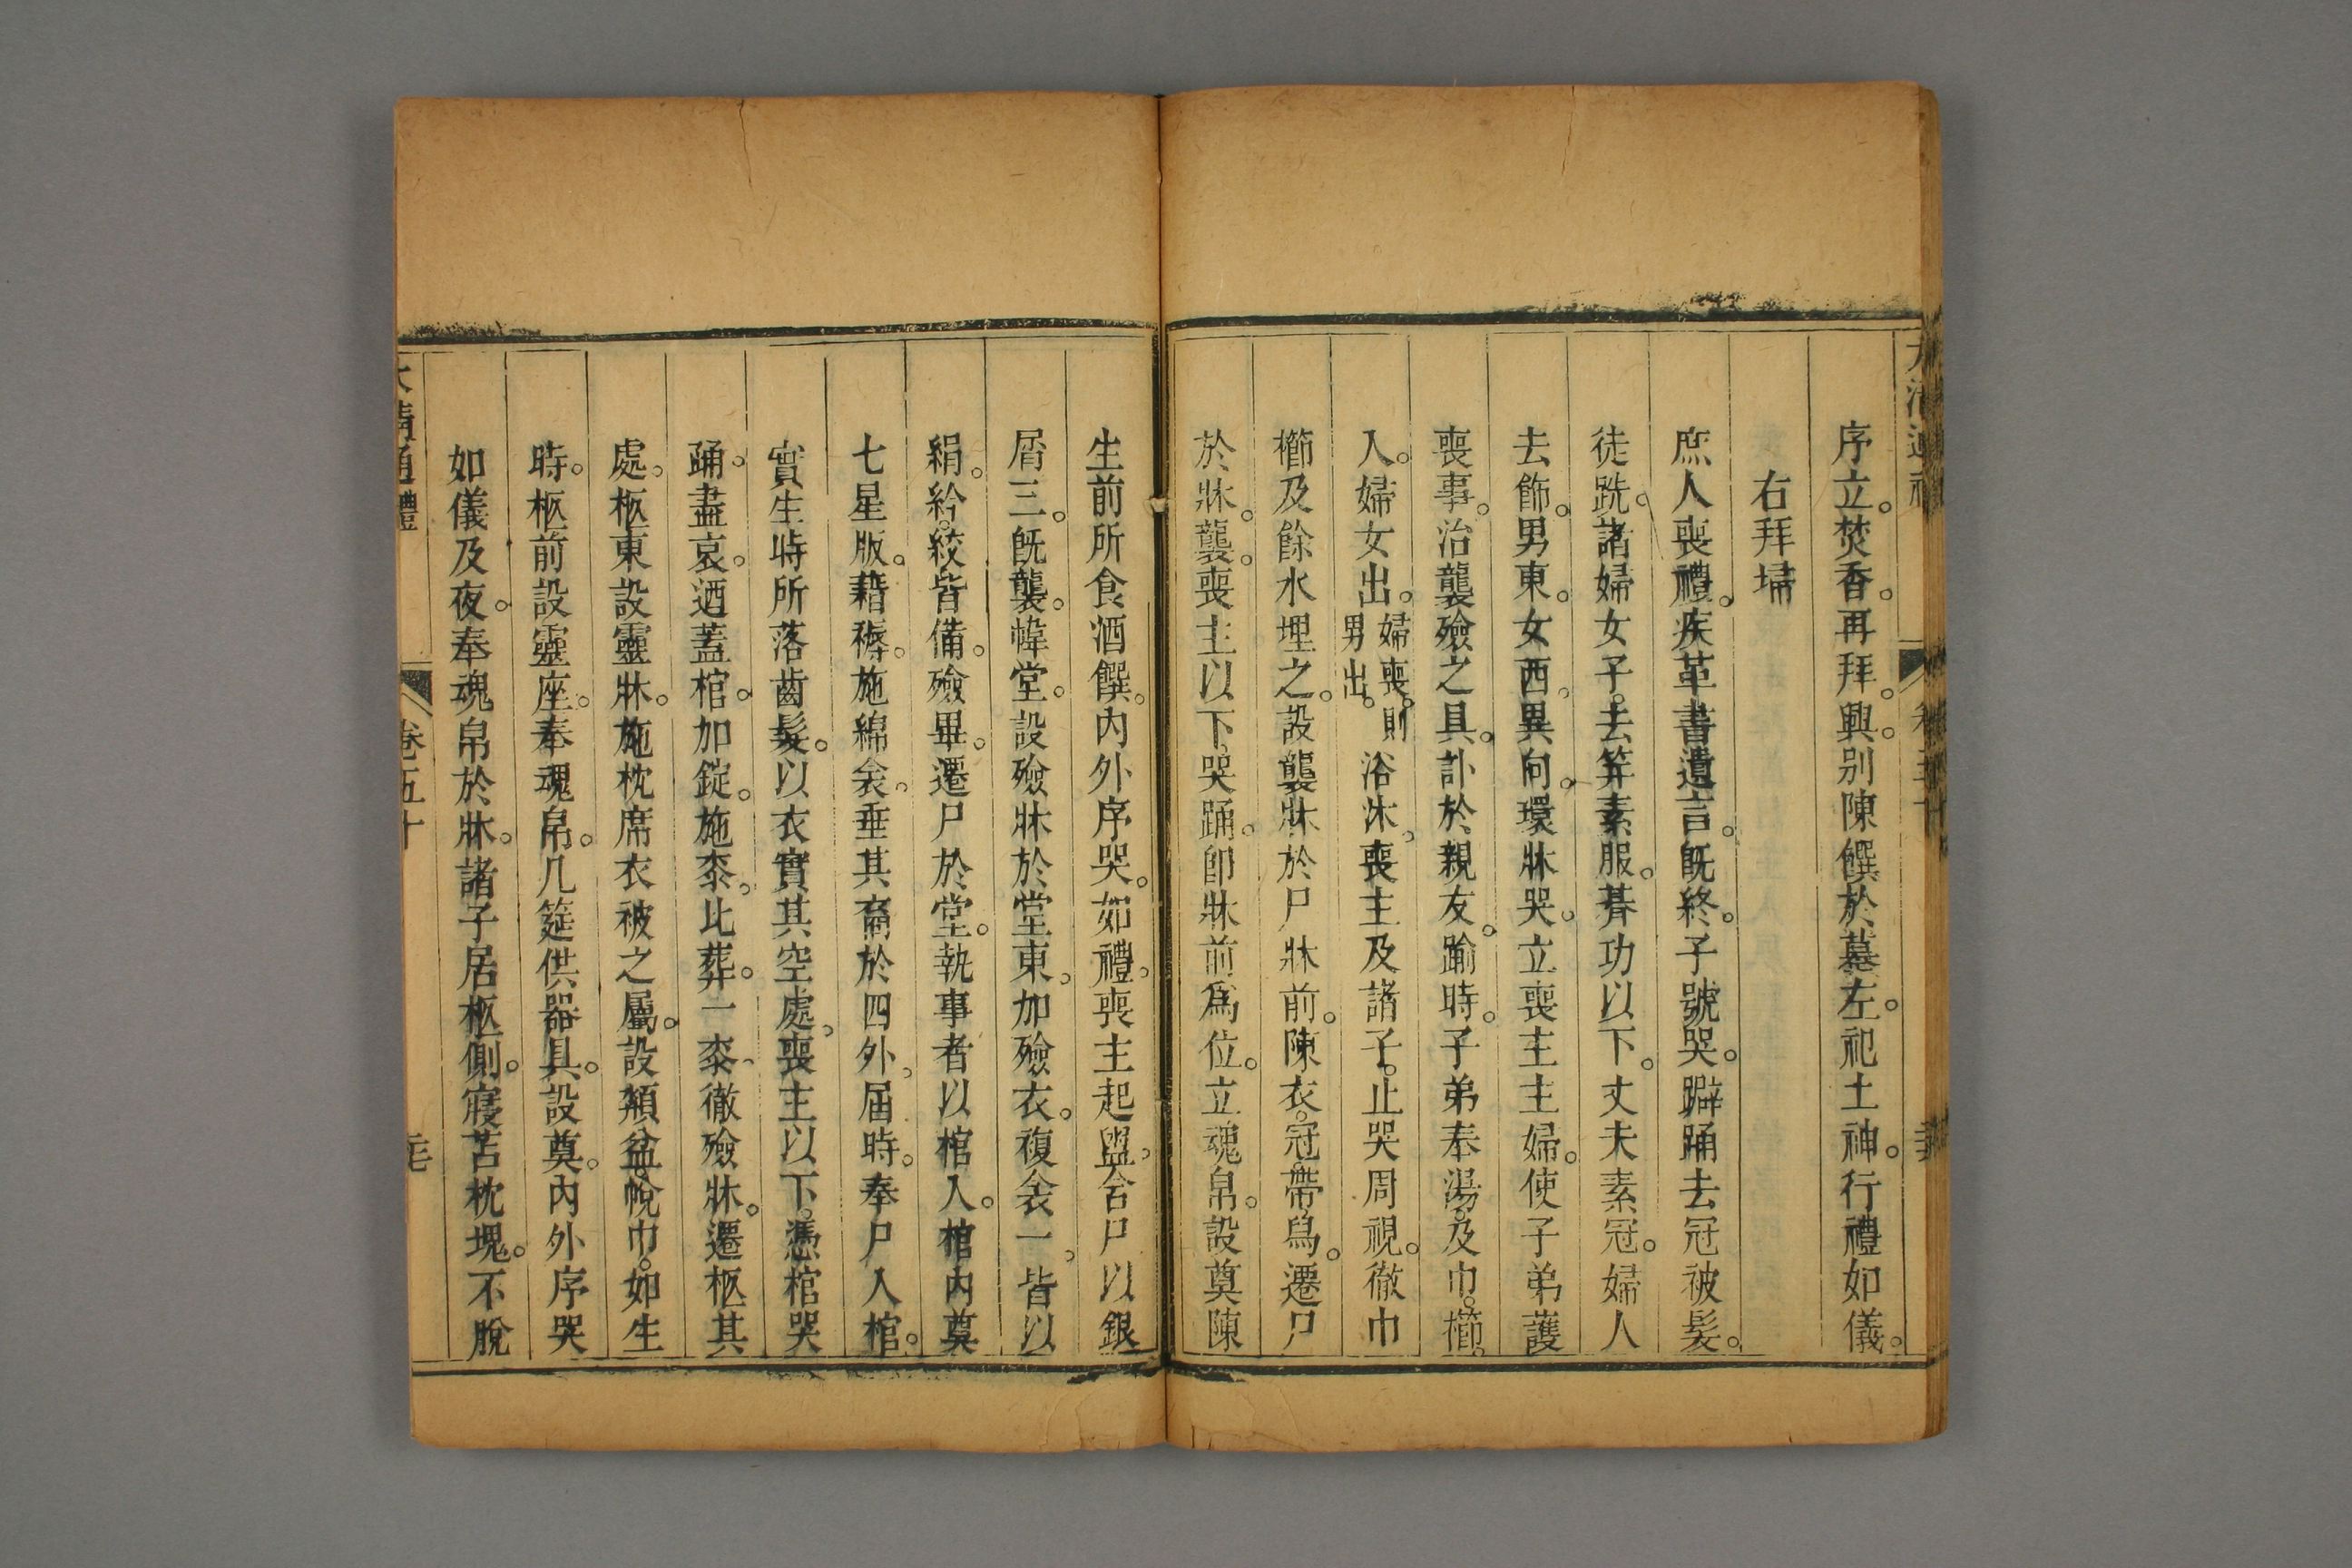 序立。焚香。再拜。興。別陳饌於墓左。祀土神。行禮如儀。
右拜埽
庶人喪禮。疾革書遺言。旣終。子號哭。躃踊去冠被髮。
徒跣。諸婦女子。去笄素服。朞功以下。丈夫素冠。婦人
去飾。男東。女西。異向。環牀哭。立喪主主婦。使子弟護
喪事。治襲殮之具。訃於親友。踰時。子弟奉湯。及巾。櫛。
入。婦女出。婦喪。則男出。浴沐。喪主及諸子。止哭周視。徹巾
櫛及餘水埋之。設襲牀於尸牀前。陳衣。冠。帶。舄。遷尸
於牀。襲。喪主以下。哭踊。卽牀前爲位。立魂帛。設奠陳
生前所食酒饌。內外序哭。如禮。喪主起盥。含尸以銀
屑三。旣襲。幃堂。設殮牀於堂東。加殮衣。複衾一。皆以
絹。紟。絞皆備。殮畢。遷尸於堂。執事者以棺入。棺內奠
七星版。藉褥。施綿衾。垂其裔於四外。届時。奉尸入棺。
實生時所落齒髮。以衣實其空處。喪主以下。憑棺哭
踊。盡哀。迺蓋棺。加錠。施桼。比葬。一桼。徹殮牀。遷柩其
處。柩東設靈牀。施枕席衣被之屬。設頮盆。帨巾。如生
時。柩前設靈座。奉魂帛。几筵供器具。設奠。內外序哭
如儀及夜。奉魂帛於牀。諸子居柩側。寢苫枕塊。不脫
大清通禮
卷五十